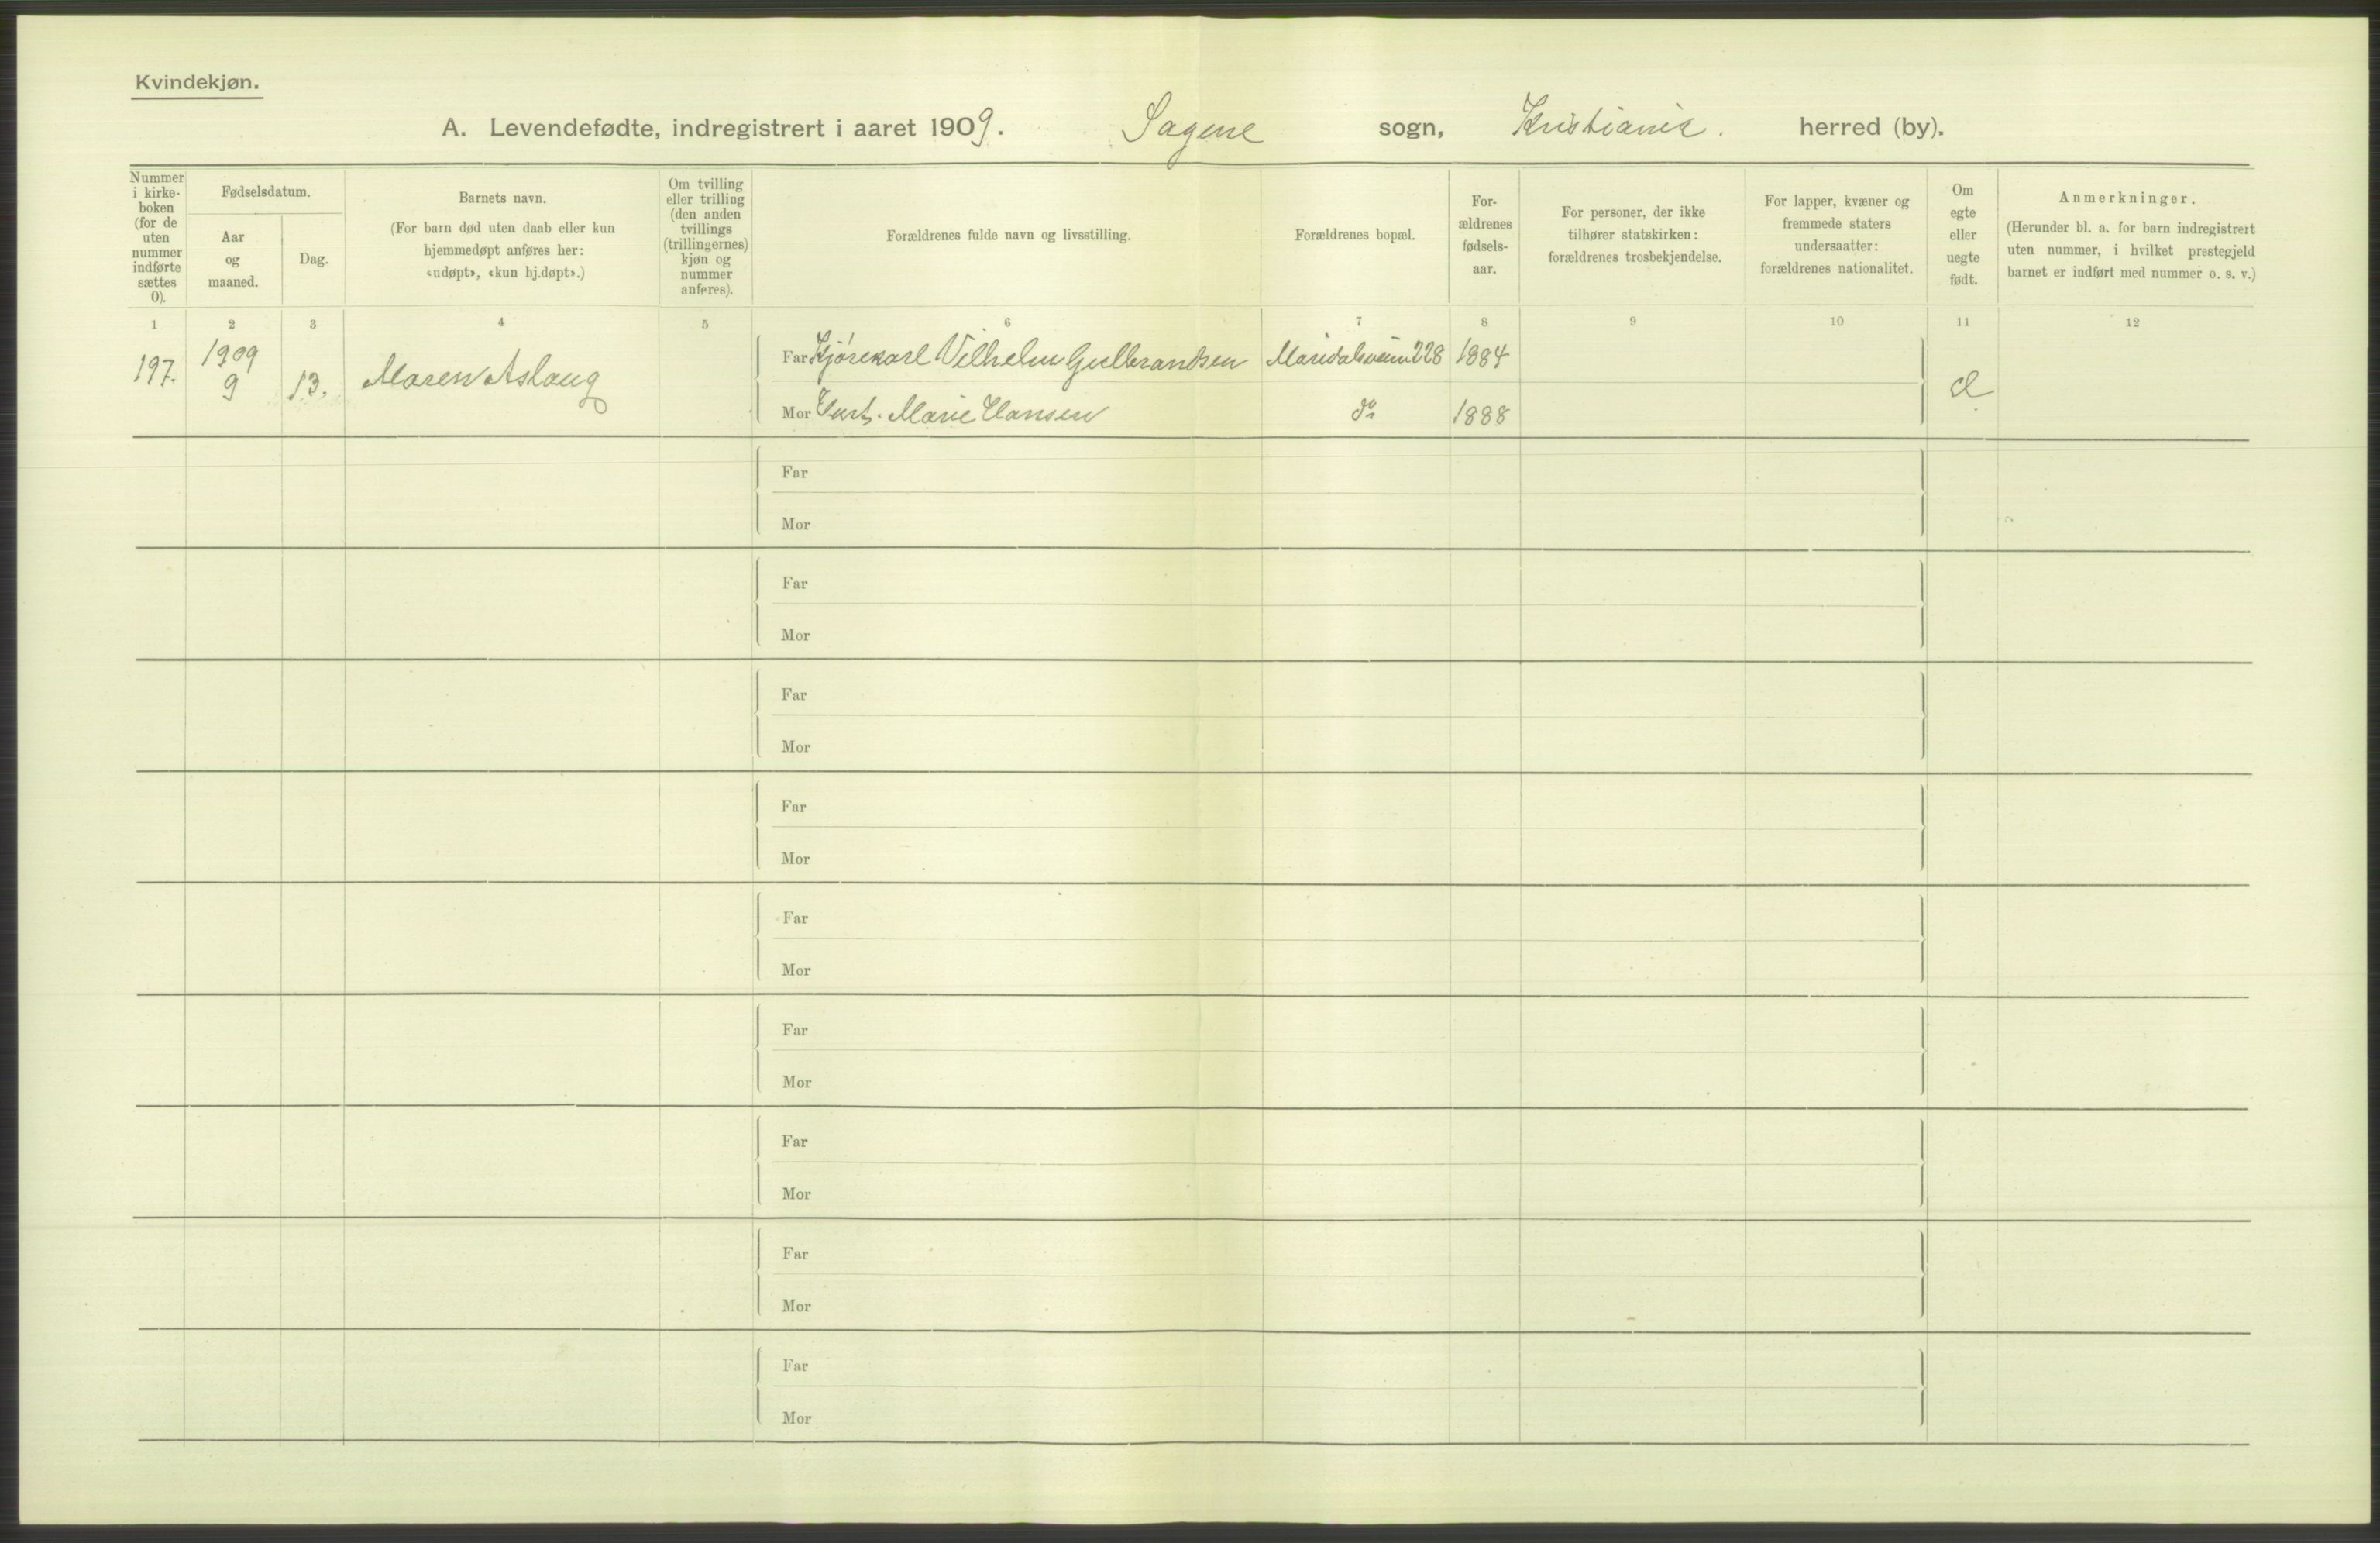 Kvindekjøn.
A. Levendefødte, indregistrert i aaret 1909. Sagene sogn, Kristiania. herred (by).
Nummer i kirke- boken (for de uten nummer indførte sættes 0).
Fødselsdatum.
Aar og maaned.
Dag.
Barnets navn.
(For barn død uten daab eller kun
hjemmedøpt anføres her:
«udøpt», «kun hj.døpt».)
Om tvilling
eller trilling
(den anden
tvillings
(trillingernes)
kjøn og
nummer
anføres).
Forældrenes fulde navn og livsstilling.
Forældrenes bopæl.
For-
ældrenes
fødsels-
aar.
For personer, der ikke
tilhører statskirken:
forældrenes trosbekjendelse.
For lapper, kvæner og
fremmede staters
undersaatter:
forældrenes nationalitet.
Om
egte
eller
uegte
født.
Anmerkninger.
(Herunder bl. a. for barn indregistrert
uten nummer, i hvilket prestegjeld
barnet er indført med nummer o. s. v.)
1 2 3 4 5 6 7 8 9 10 11 12
197. 1909 9 13. Maren Aslaug
Far Kjørekarl Vilhelm Gulbrandsen Maridalsveien 228 1884
Mor Hust. Marie Hansen do 1888
Far
Mor
Far
Mor
Far
Mor
Far
Mor
Far
Mor
Far
Mor
Far
Mor
Far
Mor
Far
Mor